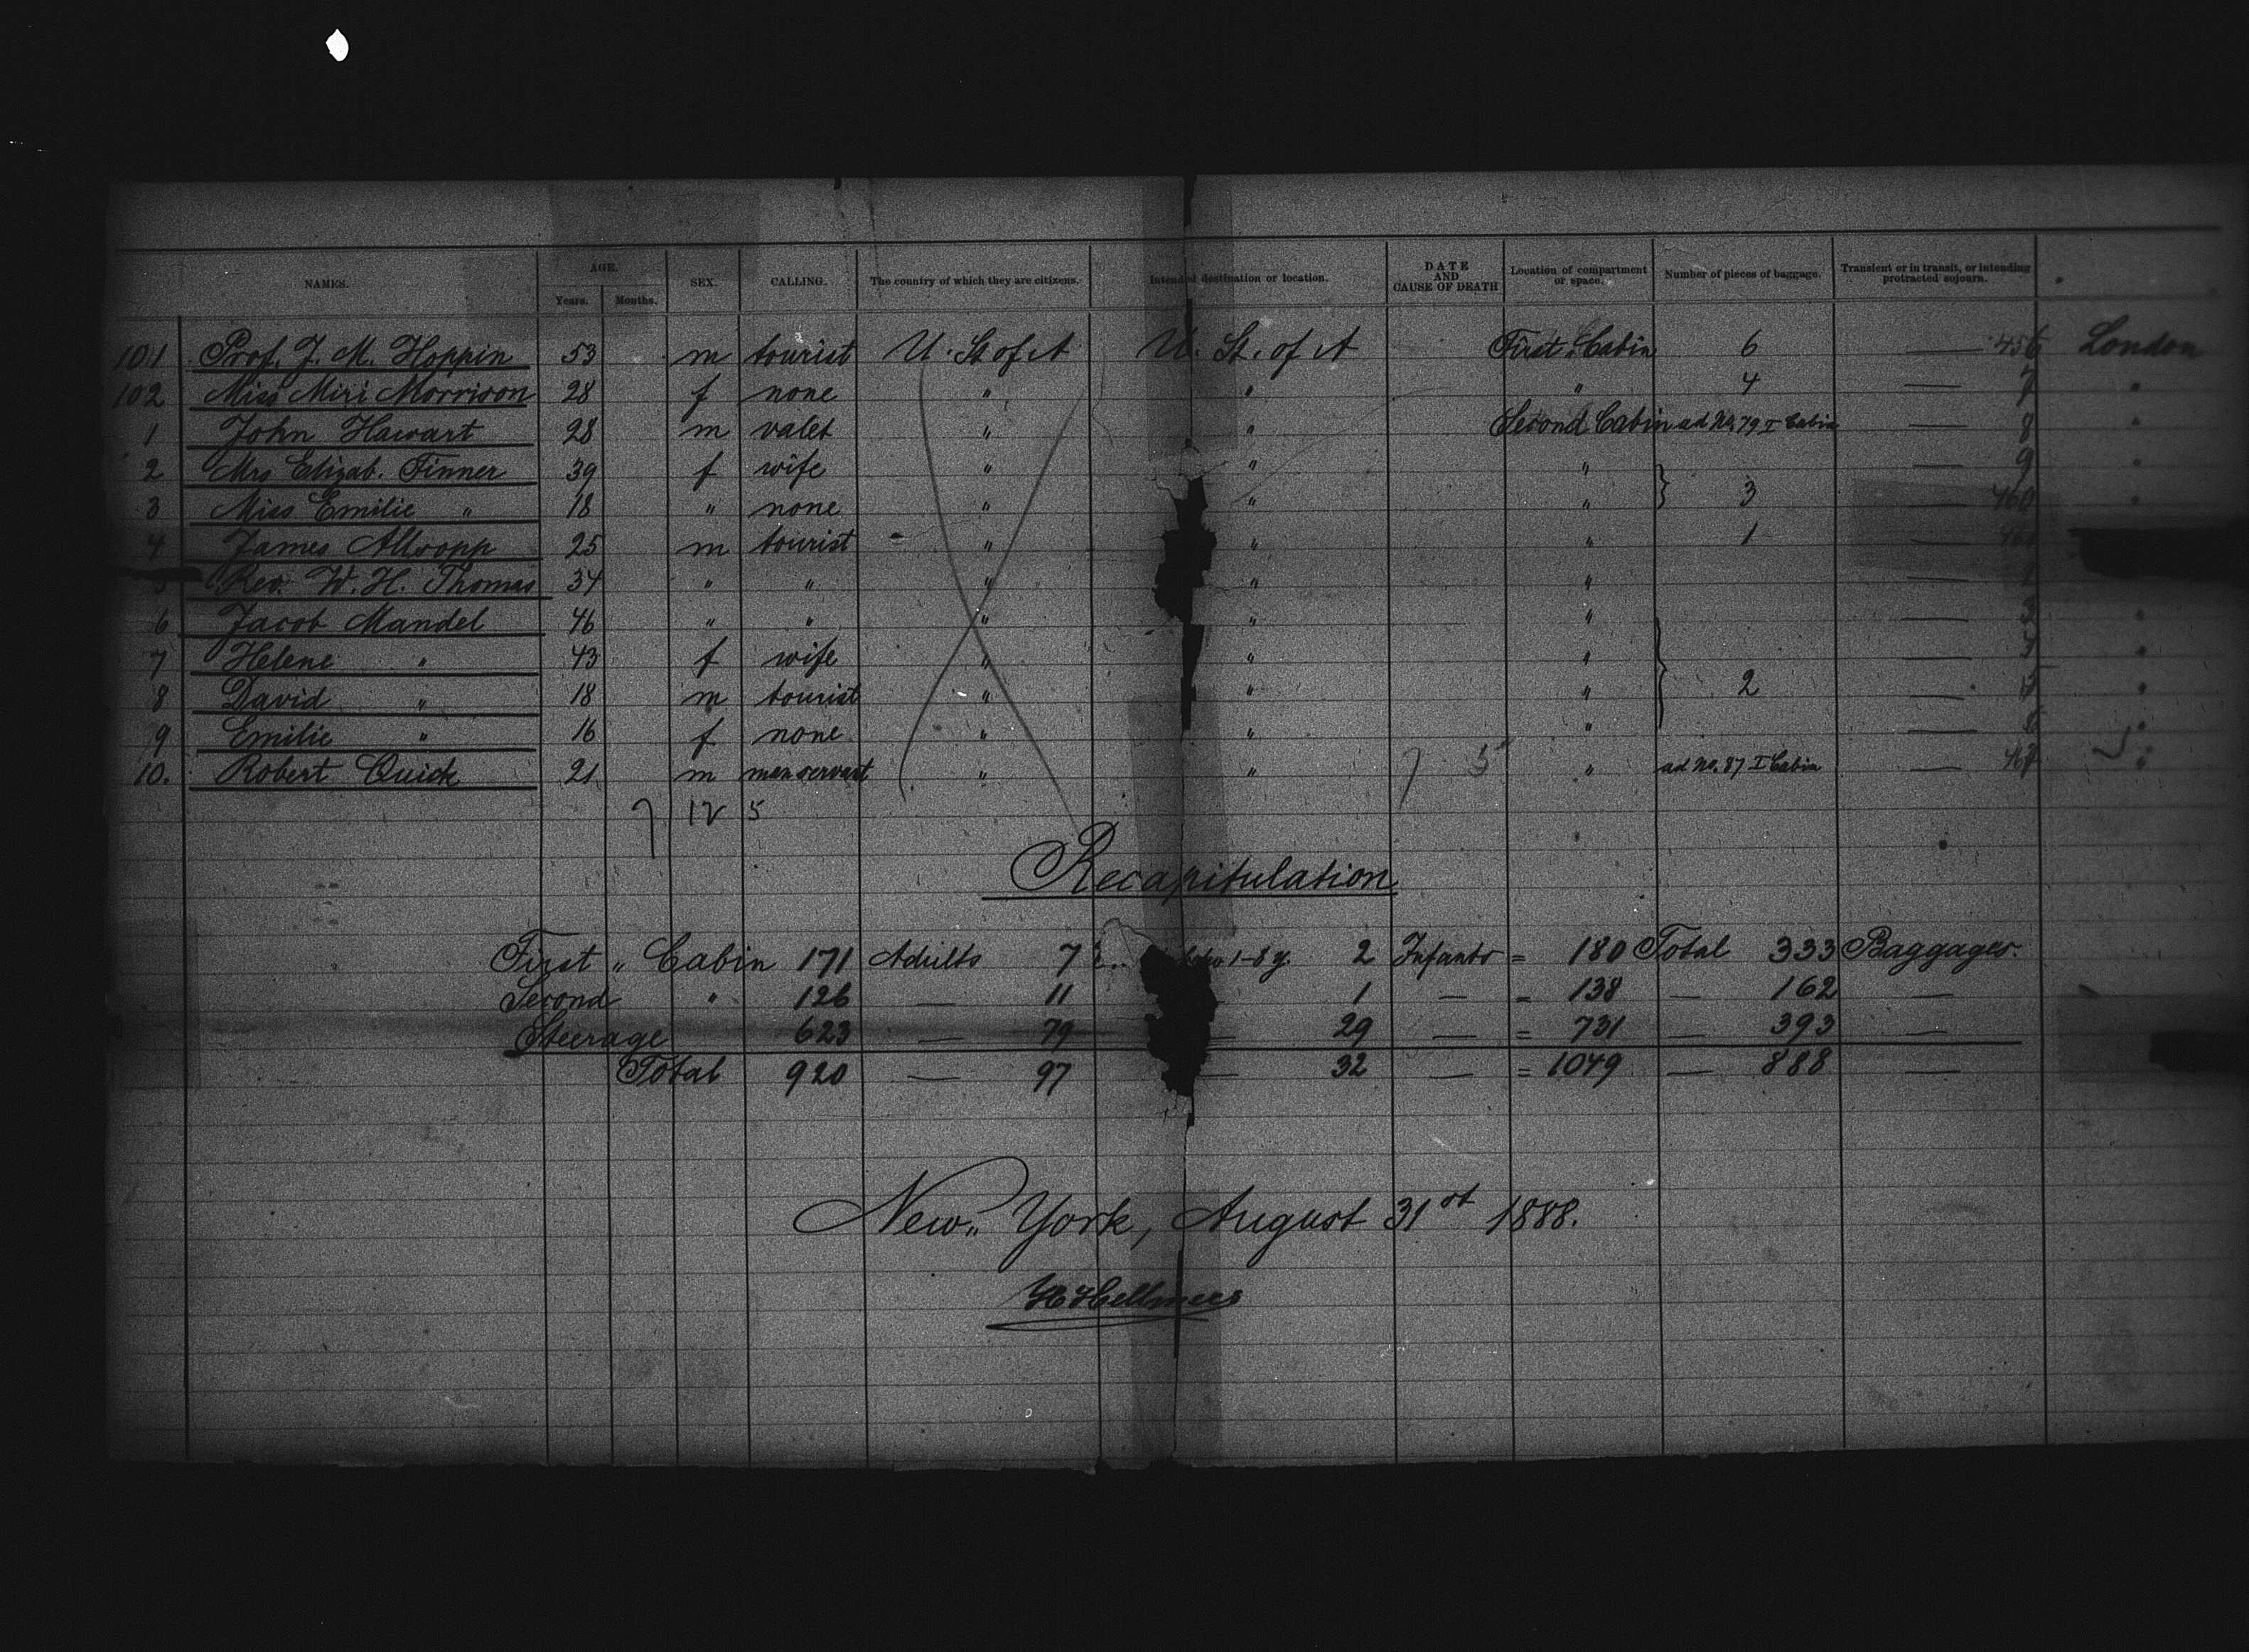 NAMES. AGE. Years. Months. SEX. CALLING. The country of which they are citizens. Intended destination or location. DATE AND CAUSE OF DEATH Location of compartment or space. Number of pieces of baggage. Transient or in transit, or intending protracted sojourn.
101 Prof. J. M. Hoppin 53 m tourist U. St of A U. St. of A First Cabin 6 — 456 London
102 Miss Miri Morrison 28 f none " " " 4 — 7 "
1 John Hawart 28 m valet " " Second Cabin ad No. 79 I Cabin — 8 "
2 Mrs Elizab. Finner 39 f wife " " " — 9 "
3 Miss Emilie " 18 " none " " " 3 — 460 "
4 James Allsopp 25 m tourist " " " 1 —
5 Rev. W. H. Thomas 34 " " " " " —
6 Jacob Mandel 46 " " " " " — "
7 Helene " 43 f wife " " " — "
8 David " 18 m tourist " " " 2 — "
9 Emilie " 16 f none " " " — "
10. Robert Quick 21 m man servant " " 5 " ad No. 87 I Cabin — "
12 5
Recapitulation
First " Cabin 171 Adults 7 1-8 y. 2 Infants = 180 Total 333 Baggages.
Second " 126 — 11 1 — = 138 — 162 —
Steerage 623 — 79 — 29 — = 731 — 393 —
Total 920 — 97 — 32 — = 1049 — 888 —
New York, August 31st 1888.
H Hellmers